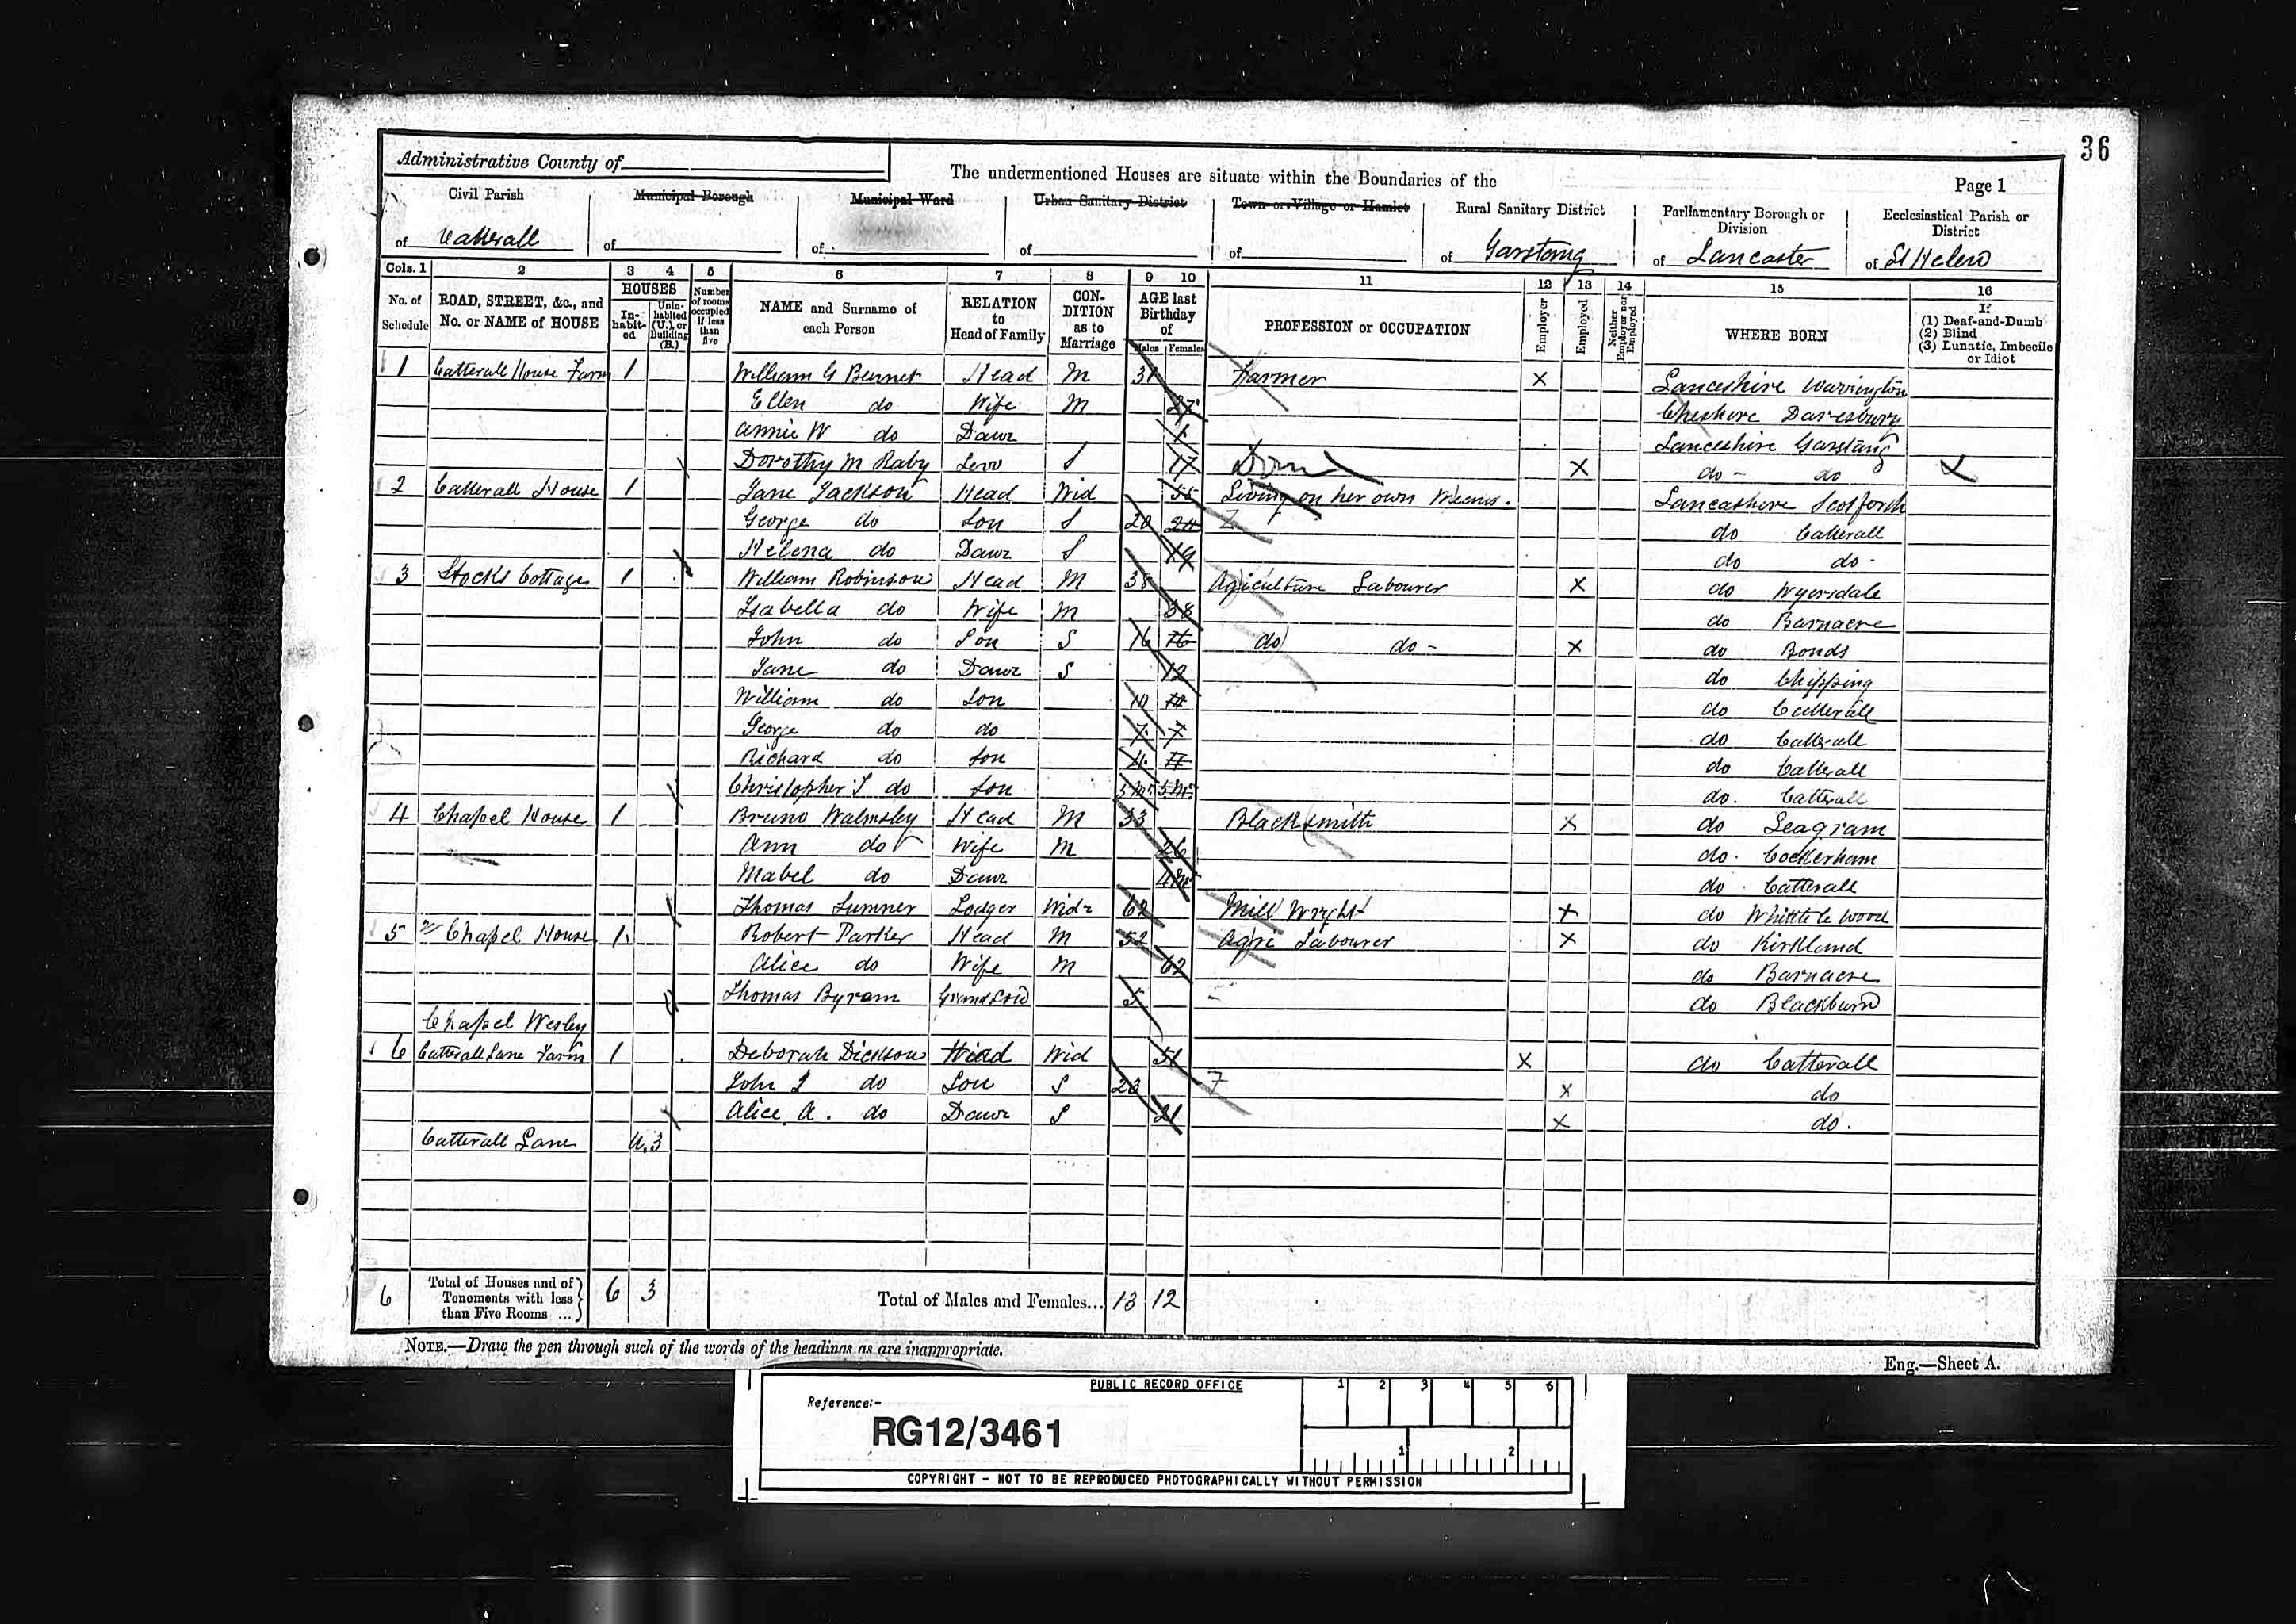 36
Administrative County of
The undermentioned Houses are situate within the Boundaries of the
Page 1
Civil Parish of Catterall
Municipal Borough of
Municipal Ward of
Urban Sanitary District of
Town or Village or Hamlet of
Rural Sanitary District of Garstang
Parliamentary Borough or Division of Lancaster
Ecclesiastical Parish or District of St Helens
Cols. 1 2 3 4 5 6 7 8 9 10 11 12 13 14 15 16
No. of Schedule
ROAD, STREET, &c., and No. or NAME of HOUSE
HOUSES
In-habit-ed
Unin-habited (U.), or Building (B.)
Number of rooms occupied if less than five
NAME and Surname of each Person
RELATION to Head of Family
CON-DITION as to Marriage
AGE last Birthday of
Males Females
PROFESSION or OCCUPATION
Employer
Employed
Neither Employer nor Employed
WHERE BORN
If (1) Deaf-and-Dumb (2) Blind (3) Lunatic, Imbecile or Idiot
1 Catterall House Farm 1 William G Bennet Head M 31 Farmer X Lancashire Warrington
Ellen do Wife M 27 Cheshire Daresbury
Annie W do Daur 1 Lancashire Garstang
Dorothy M Raby Serv S 17 Dom X do - do X
2 Catterall House 1 Jane Jackson Head Wid 55 Living on her own Means. Lancashire Scotforth
George do Son S 20 20 do Catterall
Helena do Daur S 19 do do -
3 Stocks Cottages 1 William Robinson Head M 38 Agriculture Labourer X do Wyersdale
Isabella do Wife M 38 do Barnacre
John do Son S 16 16 do do - X do Bonds
Jane do Daur S 12 do Chipping
William do Son 10 do Catterall
George do do 7 7 do Catterall
Richard do Son 4 4 do Catterall
Christopher S do Son 5 Ms 5 Ms do. Catterall
4 Chapel House 1 Bruno Walmsley Head M 33 Black smith X do Leagram
Ann do Wife M 26 do. Cockerham
Mabel do Daur 4 Ms do. Catterall
Thomas Sumner Lodger Widr 62 Mill Wright X do Whittle Wood
5 Chapel House 1 Robert Parker Head M 52 Agre Labourer X do Kirkland
Alice do Wife M 62 do Barnacre
Thomas Byrom Grand Son 5 do Blackburn
Chapel Wesley
6 Catterall Lane Farm 1 Deborah Dickson Head Wid 51 X do Catterall
John J do Son S 23 X do
Alice A. do Daur S 21 X do.
Catterall Lane U.3
6 Total of Houses and of Tenements with less than Five Rooms ... 6 3 Total of Males and Females... 13 12
NOTE.—Draw the pen through such of the words of the headings as are inappropriate.
Eng.—Sheet A.
PUBLIC RECORD OFFICE
1 2 3 4 5 6
Reference:-
RG12/3461
1 2
COPYRIGHT - NOT TO BE REPRODUCED PHOTOGRAPHICALLY WITHOUT PERMISSION